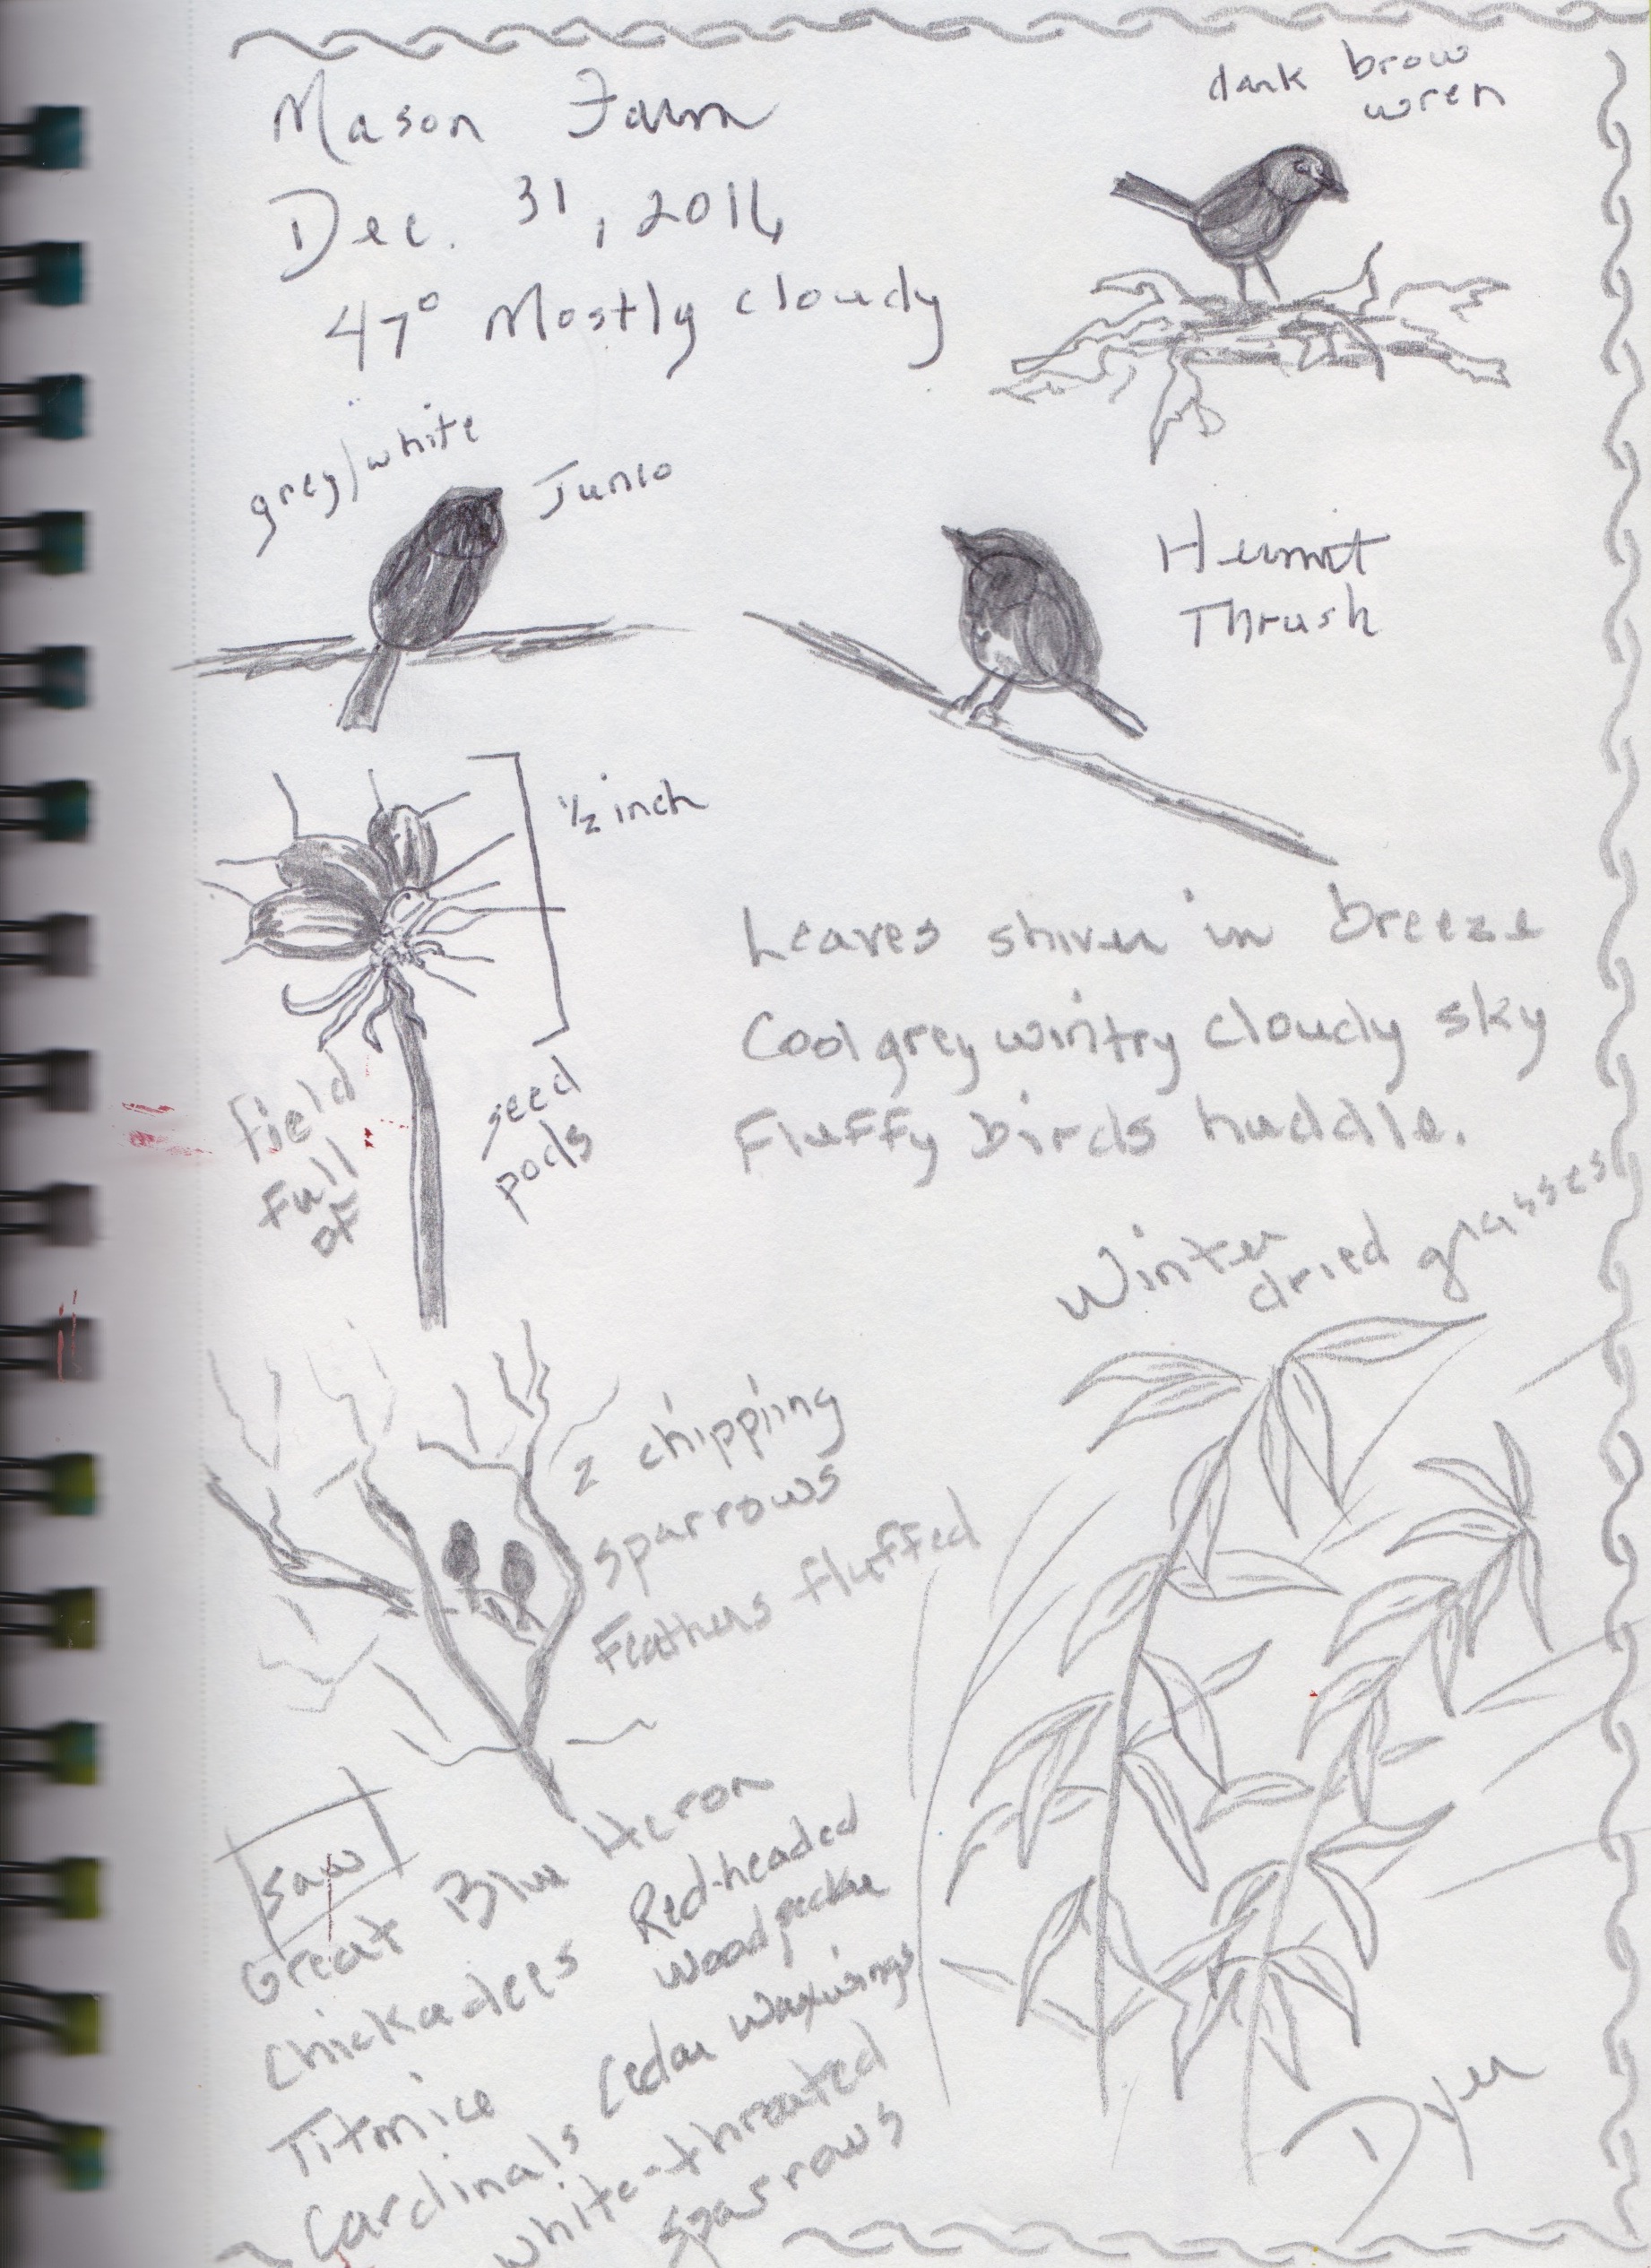 Mason Farm
Dec. 31, 2016
47° Mostly cloudy
dark brow
wren
grey/white
Junco
Hermit
Thrush
1/2 inch
field
full
of
seed
pods
Leaves shiver in breeze
Cool grey wintry cloudy sky
Fluffy birds huddle.
Winter
dried grasses
2 chipping
sparrows
Feathers fluffed
Saw
Great Blue Heron
Chickadees
Red-headed
woodpecker
Titmice
Cedar Waxwings
Cardinals
White-throated
sparrows
Dyer